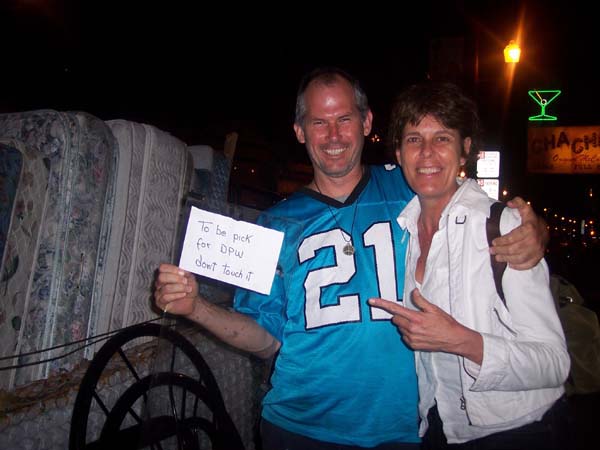 To be pick
for DPW
don't touch it
21
CHA CHA